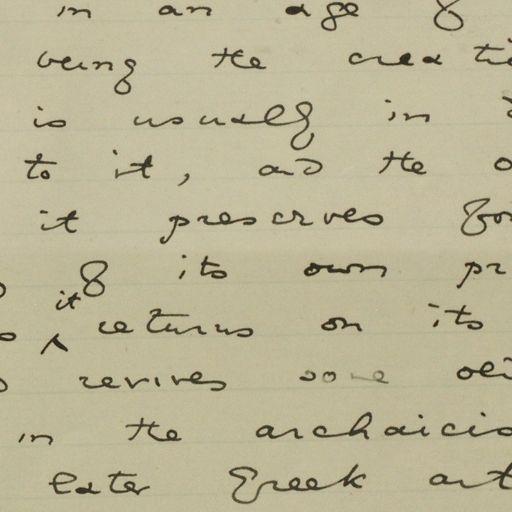 in an age of
being the creati
is usually in
to it, and the o
it preserves for
of its own pr
it
returns on its
revives some
in the archaicis
later Greek art